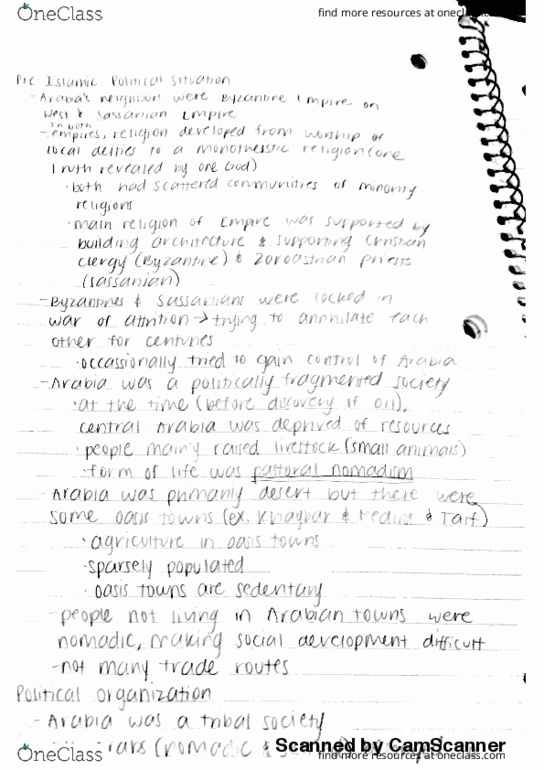 OneClass
find more resources at oneclass.com
Pre Islamic Political Situation
- Arabia's neighbors were Byzantine Empire on
West & Sassanian Empire
- In both empires, religion developed from worship of
local deities to a monotheistic religion (one
truth revealed by one God)
· both had scattered communities of minority
religions
· main religion of Empire was supported by
building architecture & supporting Christian
clergy (Byzantine) & Zoroastrian priests
(sassanian)
- Byzantines & Sassanians were locked in
war of attrition → trying to annihilate each
other for centuries
· occassionally tried to gain control of Arabia
- Arabia was a politically fragmented society
· at the time (before discovery if oil),
central Arabia was deprived of resources
· people mainly raised livestock (small animals)
· form of life was pastoral nomadism
- Arabia was primarily desert but there were
some oasis towns (ex. Khaybar & Medina & Taif)
· agriculture in oasis towns
· sparsely populated
· oasis towns are sedentary
- people not living in Arabian towns were
nomadic, making social development difficult
- not many trade routes
Political organization
- Arabia was a tribal society
Arabs (nomadic &
Scanned by CamScanner
OneClass
find more resources at oneclass.com